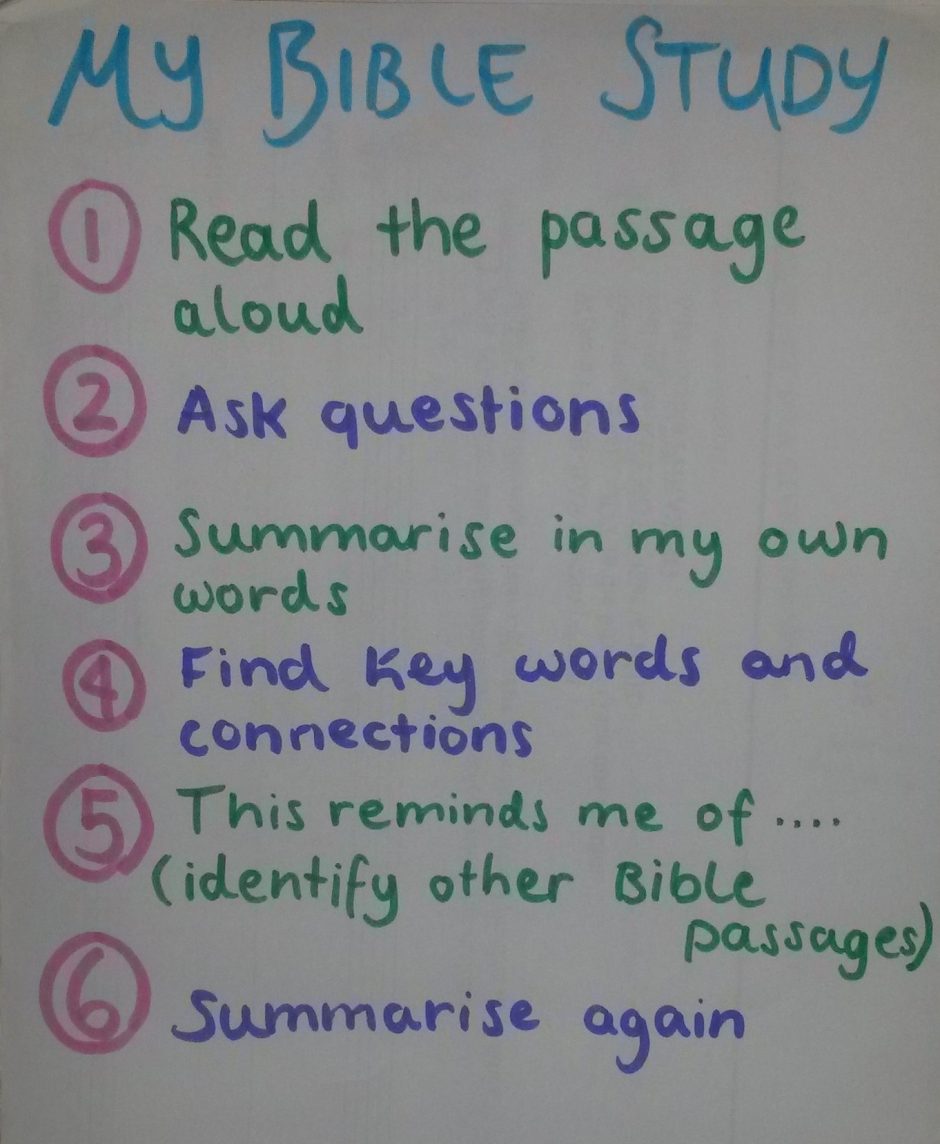 MY BIBLE STUDY
1 Read the passage
aloud
2 Ask questions
3 Summarise in my own
words
4 Find key words and
connections
5 This reminds me of ....
(identify other Bible
passages)
6 Summarise again